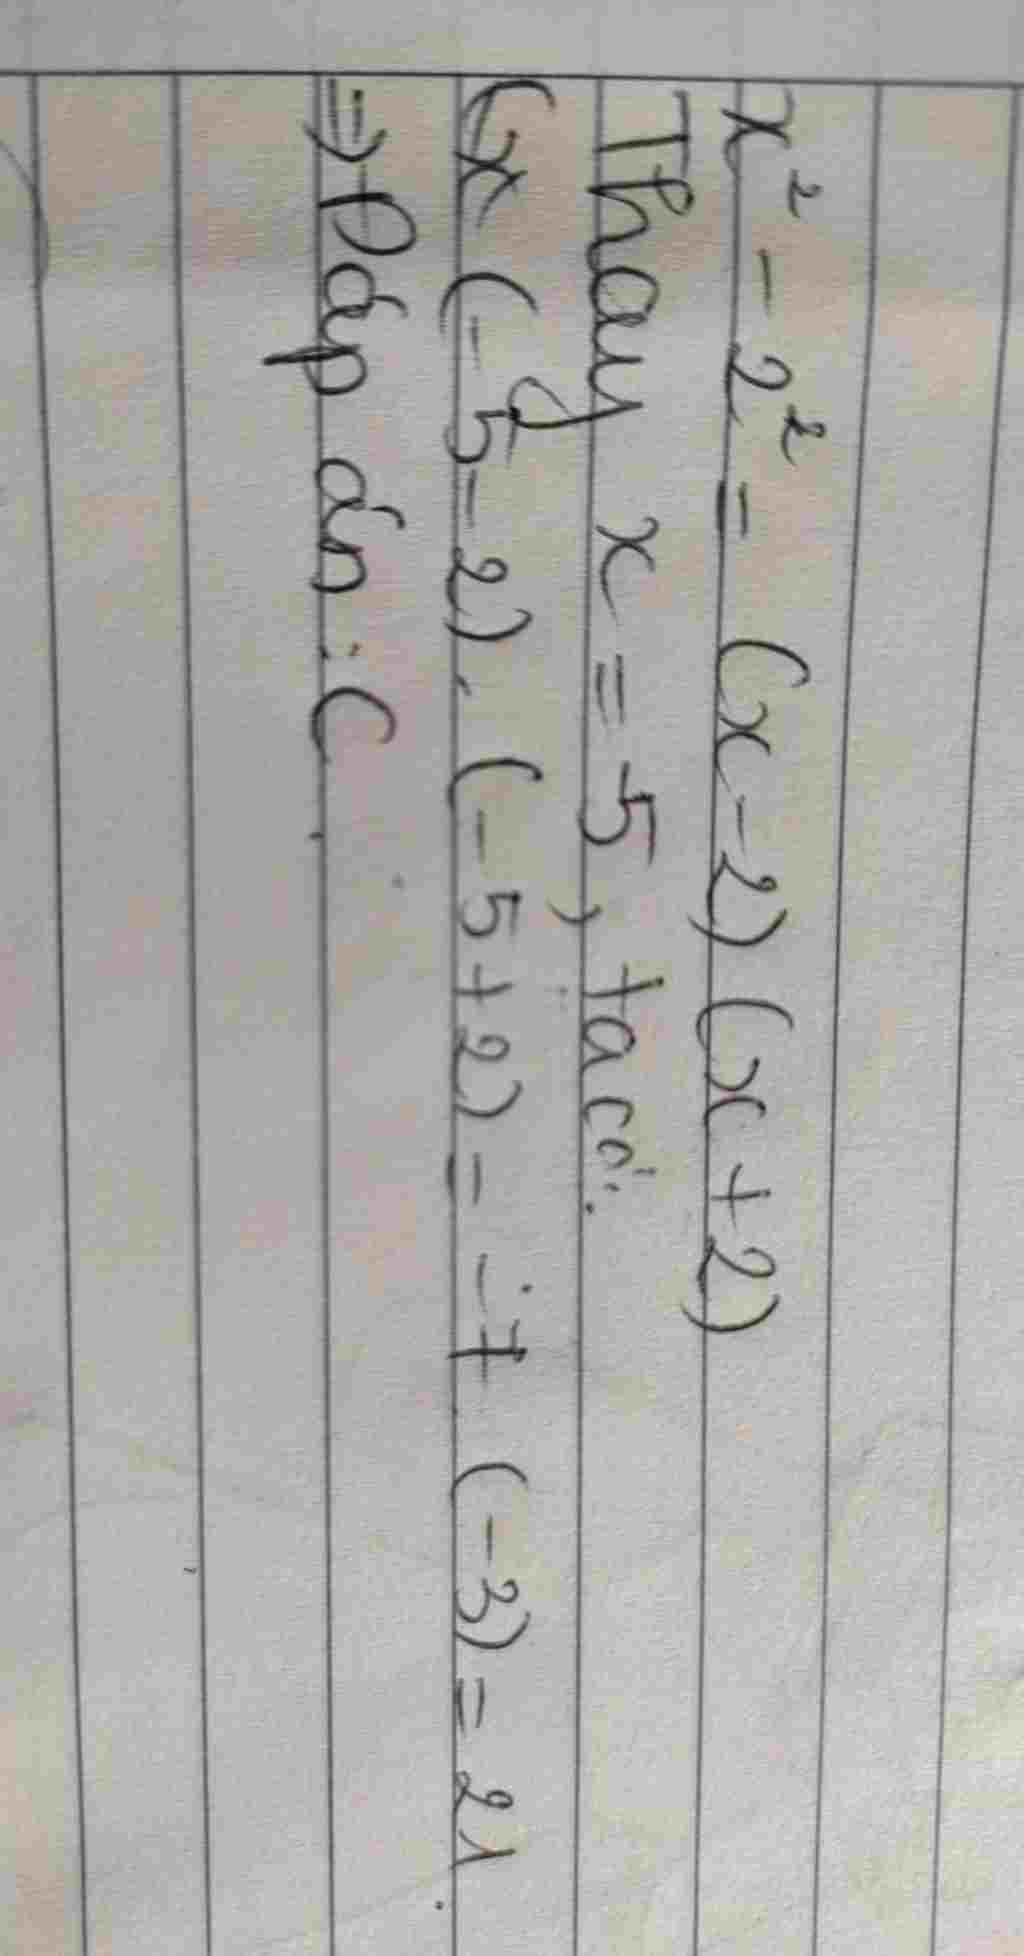 x² - 2² = (x - 2)(x + 2)
Thay x = 5, ta có:
(x (-5 - 2) . (-5 + 2) = -7 (-3) = 21.
=> Đáp án : C.